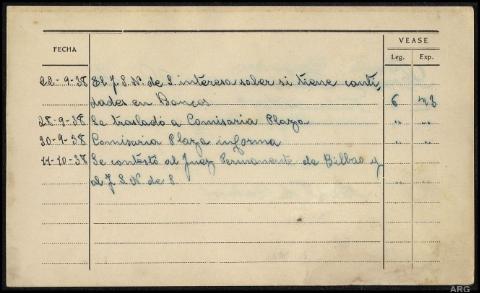 VEASE
FECHA Leg. Exp.
22-9-38 El J. S. N. de S. interesa saber si tiene canti-
dades en Bancos 6
28-9-38 Se trasladó a Comisaria Plaza " "
30-9-38 Comisaria Plaza informa " "
11-10-38 Se contestó al Juez Permanente de Bilbao y
al J. S. N. de S " "
ARG